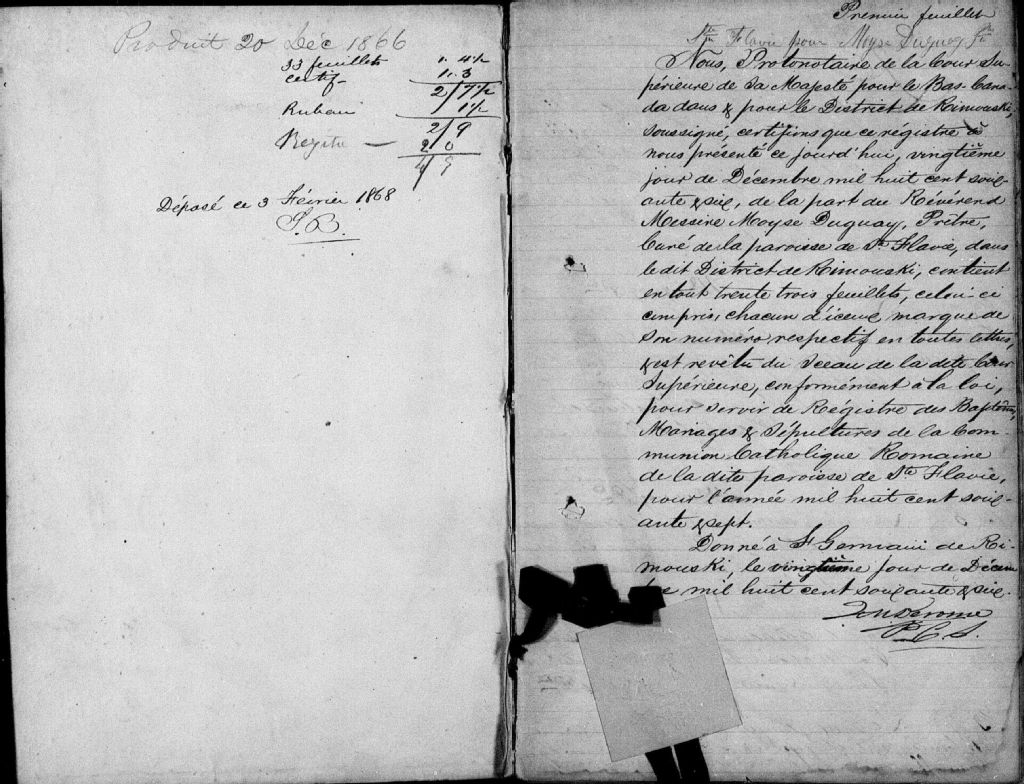 Produit 20 Déc 1866
33 feuillets 1. 4½
Certif- 1. 3
2/7½
Ruban 1½
2/9
Registre — 2/0
4/9
Déposé ce 3 Février 1868
J.B.
Premier feuillet
Ste Flavie pour Moyse Duguay Ptre
Nous, Protonotaire de la Cour Su-
périeure de Sa Majesté pour le Bas-Cana-
da dans & pour le District de Rimouski,
soussigné, certifions que ce régistre à
nous présenté ce jourd'hui, vingtième
jour de Décembre mil huit cent soix-
ante & six, de la part du Révérend
Messire Moyse Duguay, Prêtre,
Curé de la paroisse de Ste Flavie, dans
le dit District de Rimouski, contient
en tout trente trois feuillets, celui-ci
compris, chacun d'iceux marqué de
son numéro respectif en toutes lettres,
& est revêtu du Sceau de la dite Cour
Supérieure, conformément à la loi,
pour servir de Régistre des Baptêmes,
Mariages & Sépultures de la Com-
munion Catholique Romaine
de la dite paroisse de Ste Flavie,
pour l'année mil huit cent soix-
ante & sept.
Donné à St Germain de Ri-
mouski, le vingtième jour de Décem
bre mil huit cent soixante & six.
P.C.S.